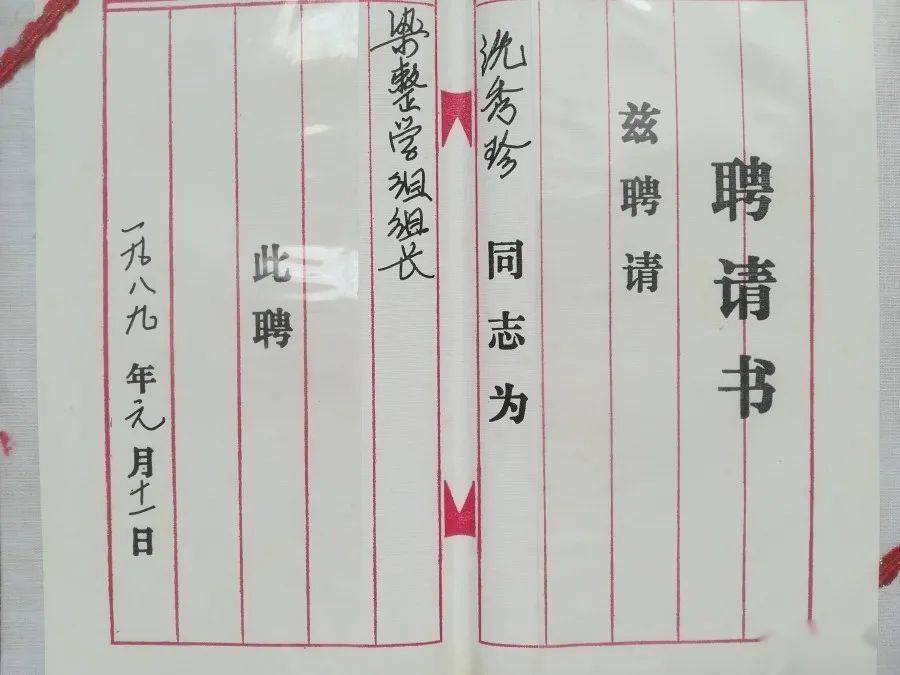 聘请书
兹聘请
沈秀珍 同志为
染整学组组长
此聘
一九八九年元月十一日